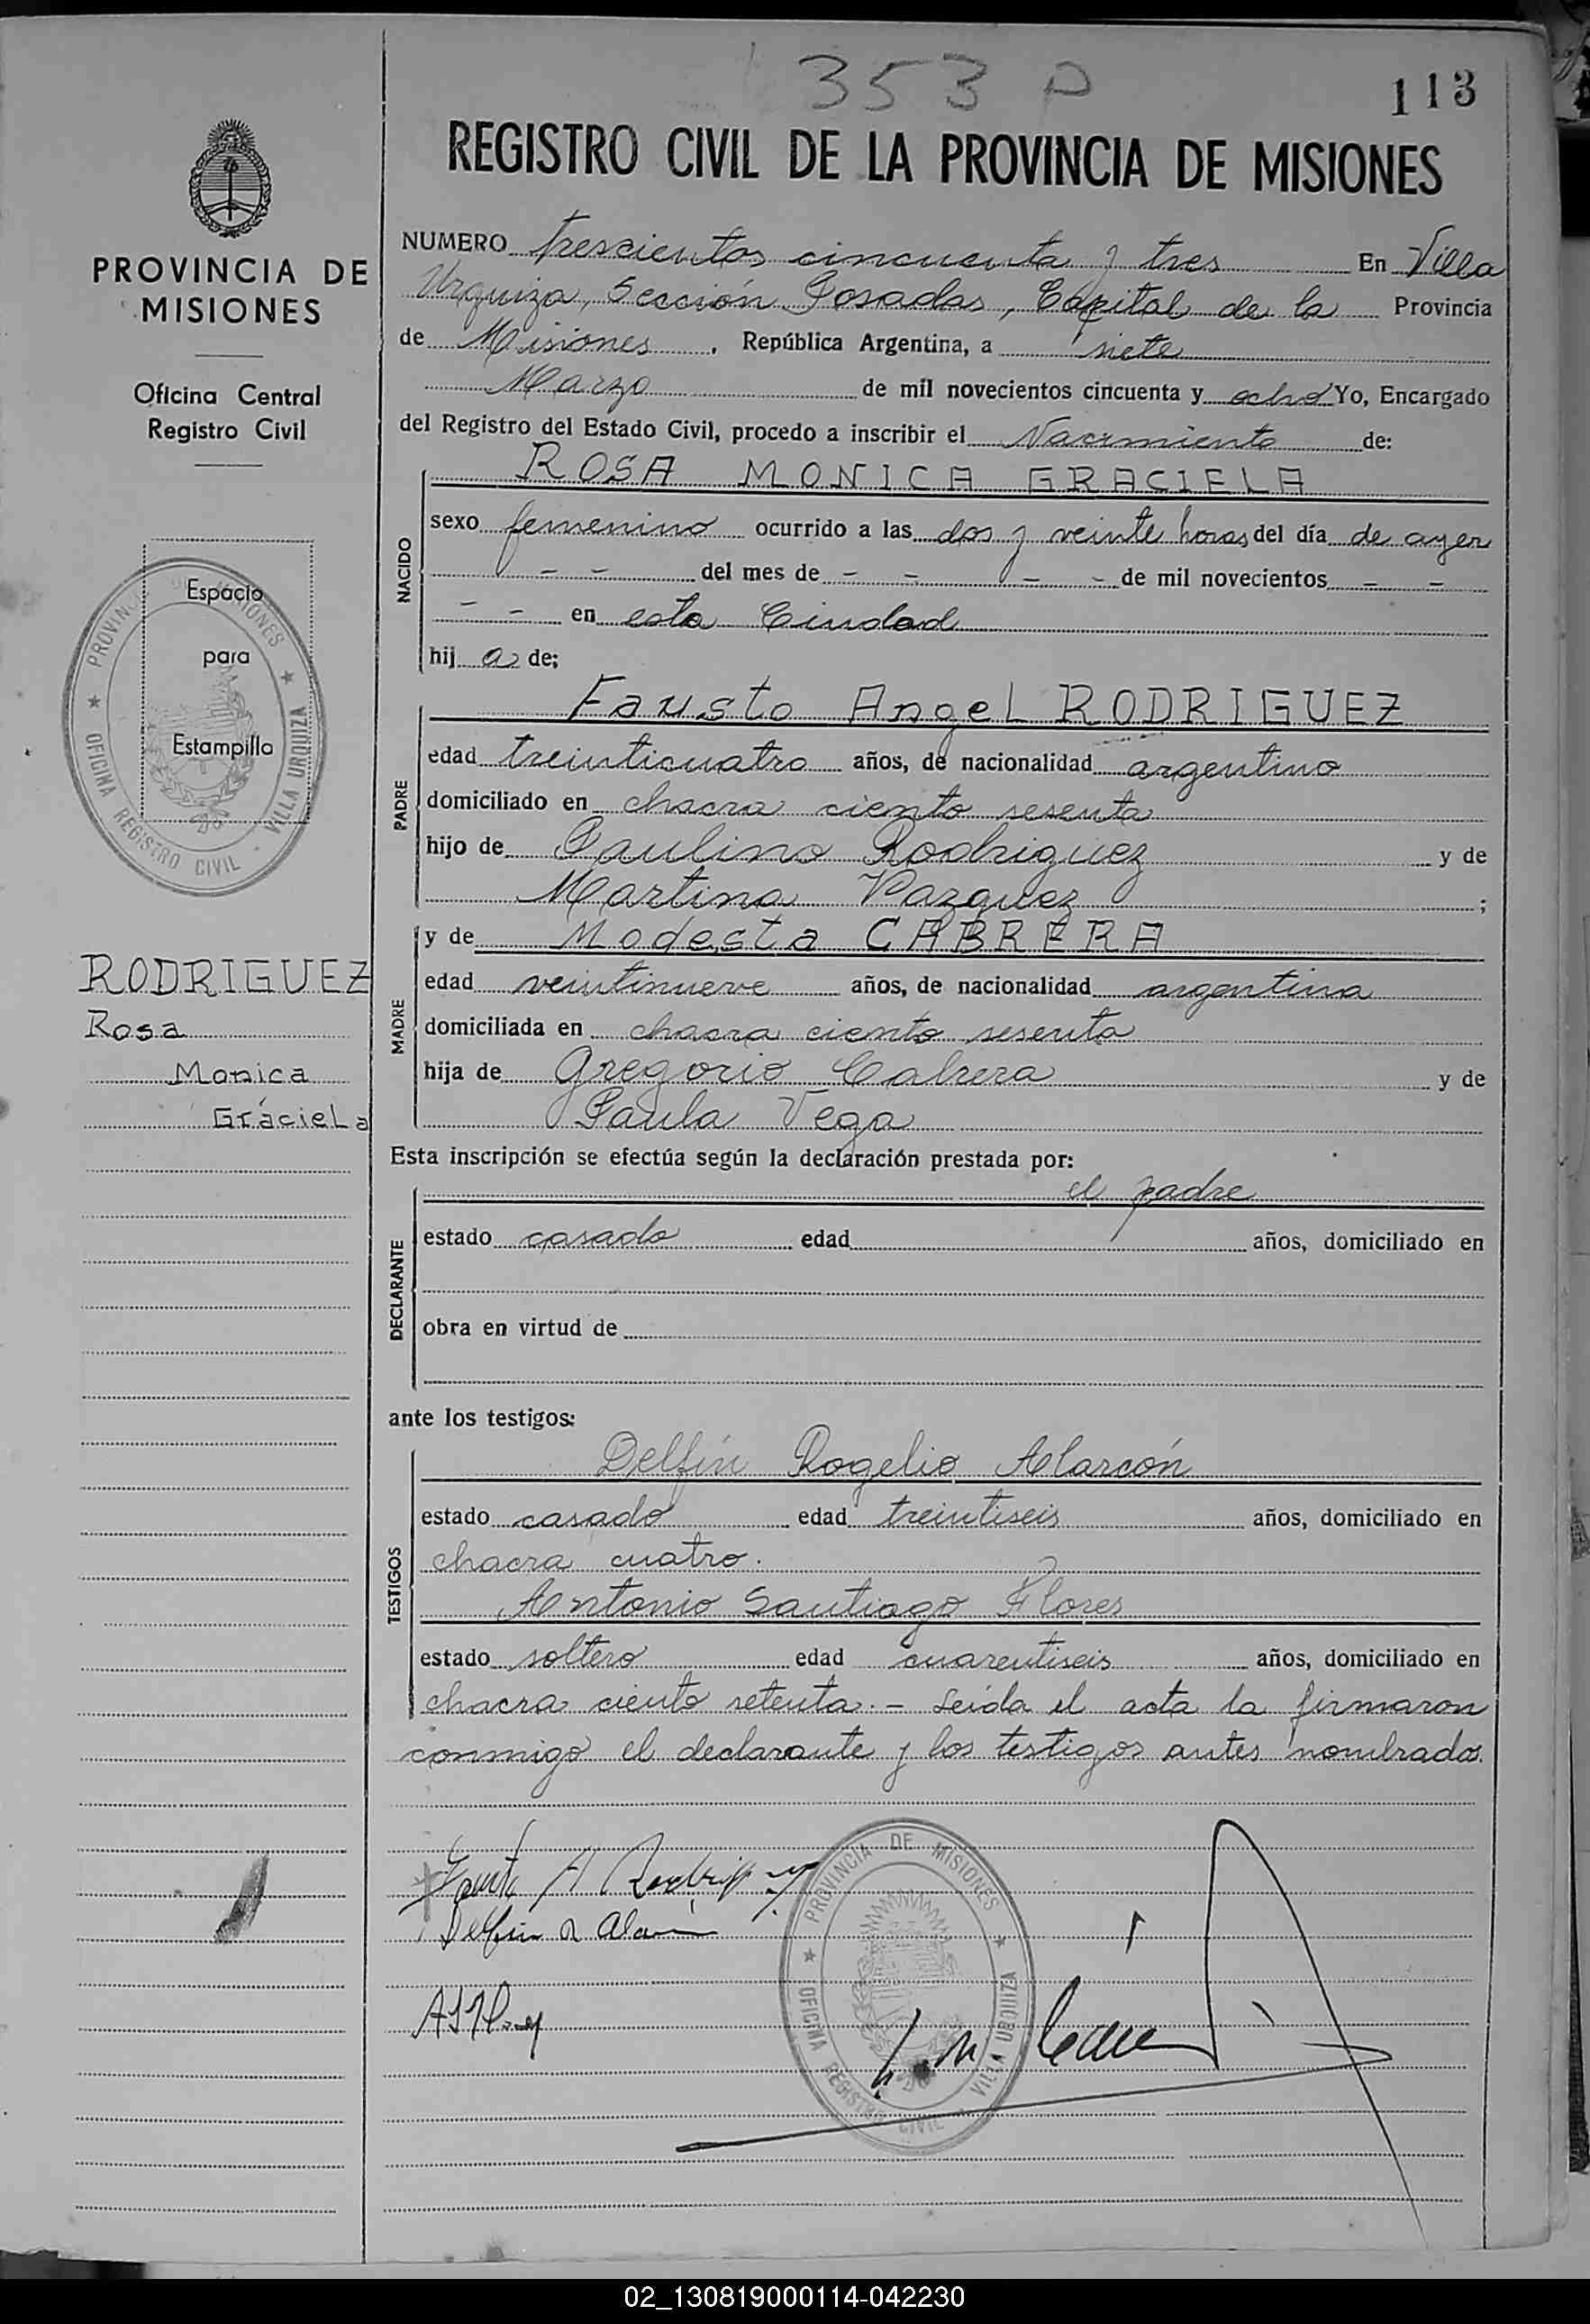 353 P
113
REGISTRO CIVIL DE LA PROVINCIA DE MISIONES
PROVINCIA DE
MISIONES
Oficina Central
Registro Civil
Espacio
para
Estampilla
PROVINCIA DE MISIONES
OFICINA REGISTRO CIVIL - VILLA URQUIZA
RODRIGUEZ
Rosa
Monica
Graciela
NUMERO trescientos cincuenta y tres En Villa
Urquiza, Sección Posadas, Capital de la Provincia
de Misiones, República Argentina, a siete
Marzo de mil novecientos cincuenta y ocho Yo, Encargado
del Registro del Estado Civil, procedo a inscribir el Nacimiento de:
NACIDO
ROSA MONICA GRACIELA
sexo femenino ocurrido a las dos y veinte horas del día de ayer
- - del mes de - - - - de mil novecientos - -
- - en esta Ciudad
hij a de;
PADRE
Fausto Angel RODRIGUEZ
edad treinticuatro años, de nacionalidad argentino
domiciliado en chacra ciento sesenta
hijo de Paulino Rodriguez y de
Martina Vazquez ;
MADRE
y de Modesta CABRERA
edad veintinueve años, de nacionalidad argentina
domiciliada en chacra ciento sesenta
hija de Gregorio Cabrera y de
Paula Vega
Esta inscripción se efectúa según la declaración prestada por:
DECLARANTE
el padre
estado casado edad años, domiciliado en
obra en virtud de
ante los testigos:
TESTIGOS
Delfín Rogelio Alarcón
estado casado edad treintiseis años, domiciliado en
chacra cuatro.
Antonio Santiago Flores
estado soltero edad cuarentiseis años, domiciliado en
chacra ciento setenta. - Leída el acta la firmaron
conmigo el declarante y los testigos antes nombrados.
Fausto A Rodriguez
Delfin R Alarcon
PROVINCIA DE MISIONES
OFICINA REGISTRO CIVIL - VILLA URQUIZA
02_130819000114-042230